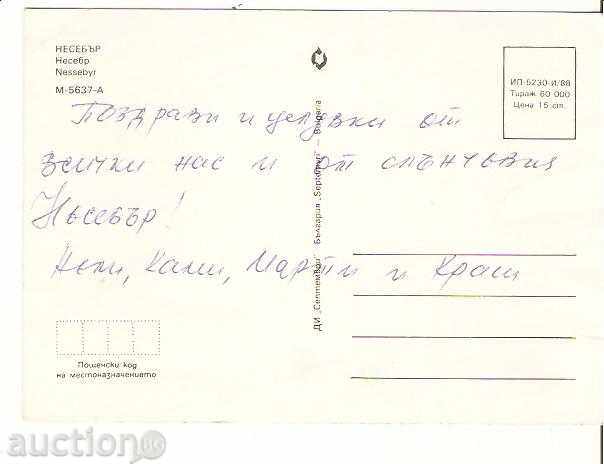 НЕСЕБЪР
Несебр
Nessebyr
М-5637-А
ИП-5230-И/88
Тираж 60 000
Цена 15 ст.
Поздрави и целувки от
всички нас и от слънчевия
Несебър!
Ками, Марти и Краси
ДИ „Септември" България „Septemvri" — Bulgaria
Пощенски код
на местоназначението
auction.BG